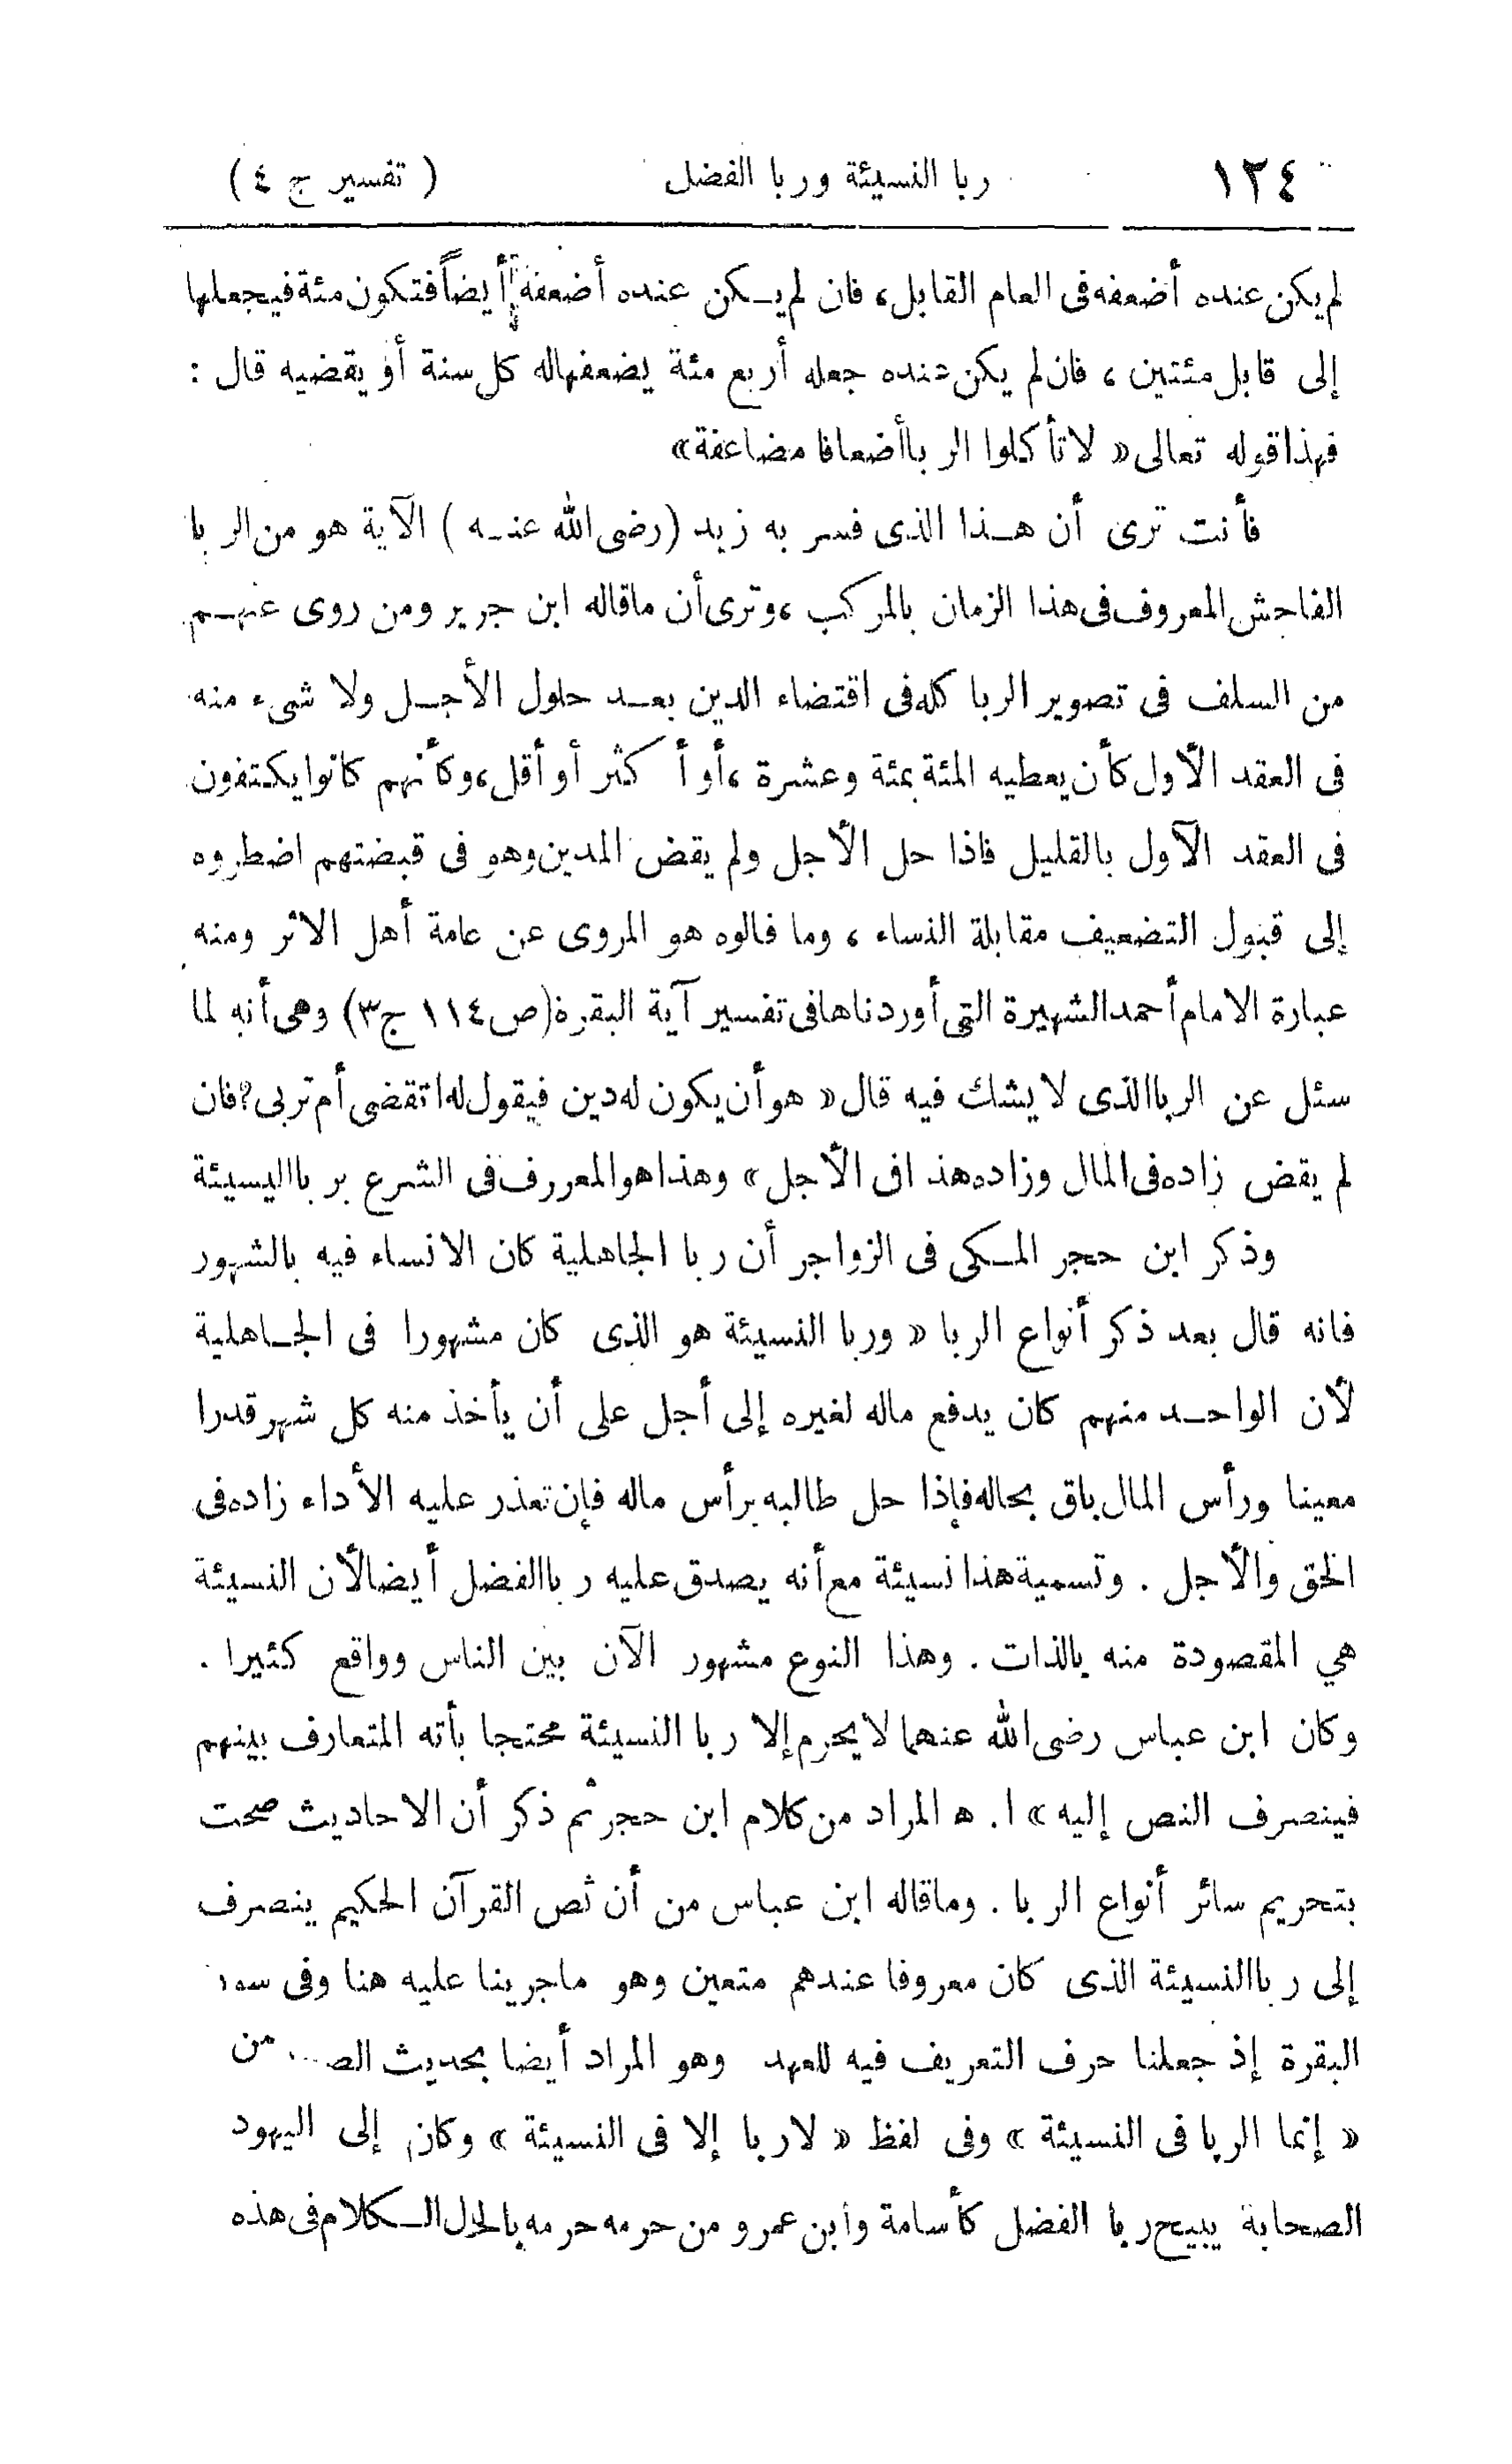 ١٢٤ ربا النسيئة وربا الفضل ( تفسير ج ٤ )
لم يكن عنده أضعفه فى العام القابل، فان لم يكن عنده أضعفه أيضاً فتكون مئة فيجعلها
إلى قابل مئتين ، فان لم يكن عنده جعله أربع مئة يضعفها له كل سنة أو يقضيه قال :
فهذا قوله تعالى « لا تأكلوا الربا أضعافا مضاعفة »
فأنت ترى أن هذا الذى فسر به زيد (رضى الله عنه ) الآية هو من الربا
الفاحش المعروف فى هذا الزمان بالمركب ، وترى أن ما قاله ابن جرير ومن روى عنهم
من السلف فى تصوير الربا كله فى اقتضاء الدين بعد حلول الأجل ولا شىء منه
فى العقد الأول كأن يعطيه المئة بمئة وعشرة ، أو أكثر أو أقل ، وكأنهم كانوا يكتفون
فى العقد الأول بالقليل فاذا حل الأجل ولم يقض المدين وهو فى قبضتهم اضطروه
إلى قبول التضعيف مقابلة النساء ، وما قالوه هو المروى عن عامة أهل الاثر ومنه
عبارة الامام أحمد الشهيرة التى أوردناها فى تفسير آية البقرة (ص ١١٤ ج ٣) وهى أنه لما
سئل عن الربا الذى لا يشك فيه قال « هو أن يكون له دين فيقول له اتقضى أم تربى؟ فان
لم يقض زاده فى المال وزاده هذا فى الأجل » وهذا هو المعروف فى الشرع بربا النسيئة
وذكر ابن حجر المكى فى الزواجر أن ربا الجاهلية كان الانساء فيه بالشهور
فانه قال بعد ذكر أنواع الربا « وربا النسيئة هو الذى كان مشهورا فى الجاهلية
لأن الواحد منهم كان يدفع ماله لغيره إلى أجل على أن يأخذ منه كل شهر قدرا
معينا ورأس المال باق بحاله فإذا حل طالبه برأس ماله فإن تعذر عليه الأداء زاده فى
الحق والأجل . وتسمية هذا نسيئة مع أنه يصدق عليه ربا الفضل أيضا لأن النسيئة
هي المقصودة منه بالذات . وهذا النوع مشهور الآن بين الناس وواقع كثيرا .
وكان ابن عباس رضى الله عنهما لا يحرم إلا ربا النسيئة محتجا بأنه المتعارف بينهم
فينصرف النص إليه » ا. ه المراد من كلام ابن حجر ثم ذكر أن الاحاديث صحت
بتحريم سائر أنواع الربا . وما قاله ابن عباس من أن نص القرآن الحكيم ينصرف
إلى ربا النسيئة الذى كان معروفا عندهم متعين وهو ما جرينا عليه هنا وفى
البقرة إذ جعلنا حرف التعريف فيه للعهد وهو المراد أيضا بحديث من
« إنما الربا فى النسيئة » وفى لفظ « لا ربا إلا فى النسيئة » وكان إلى اليهود
الصحابة يبيح ربا الفضل كأسامة وابن عمر و من حرمه حرمه بالحل الكلام فى هذه